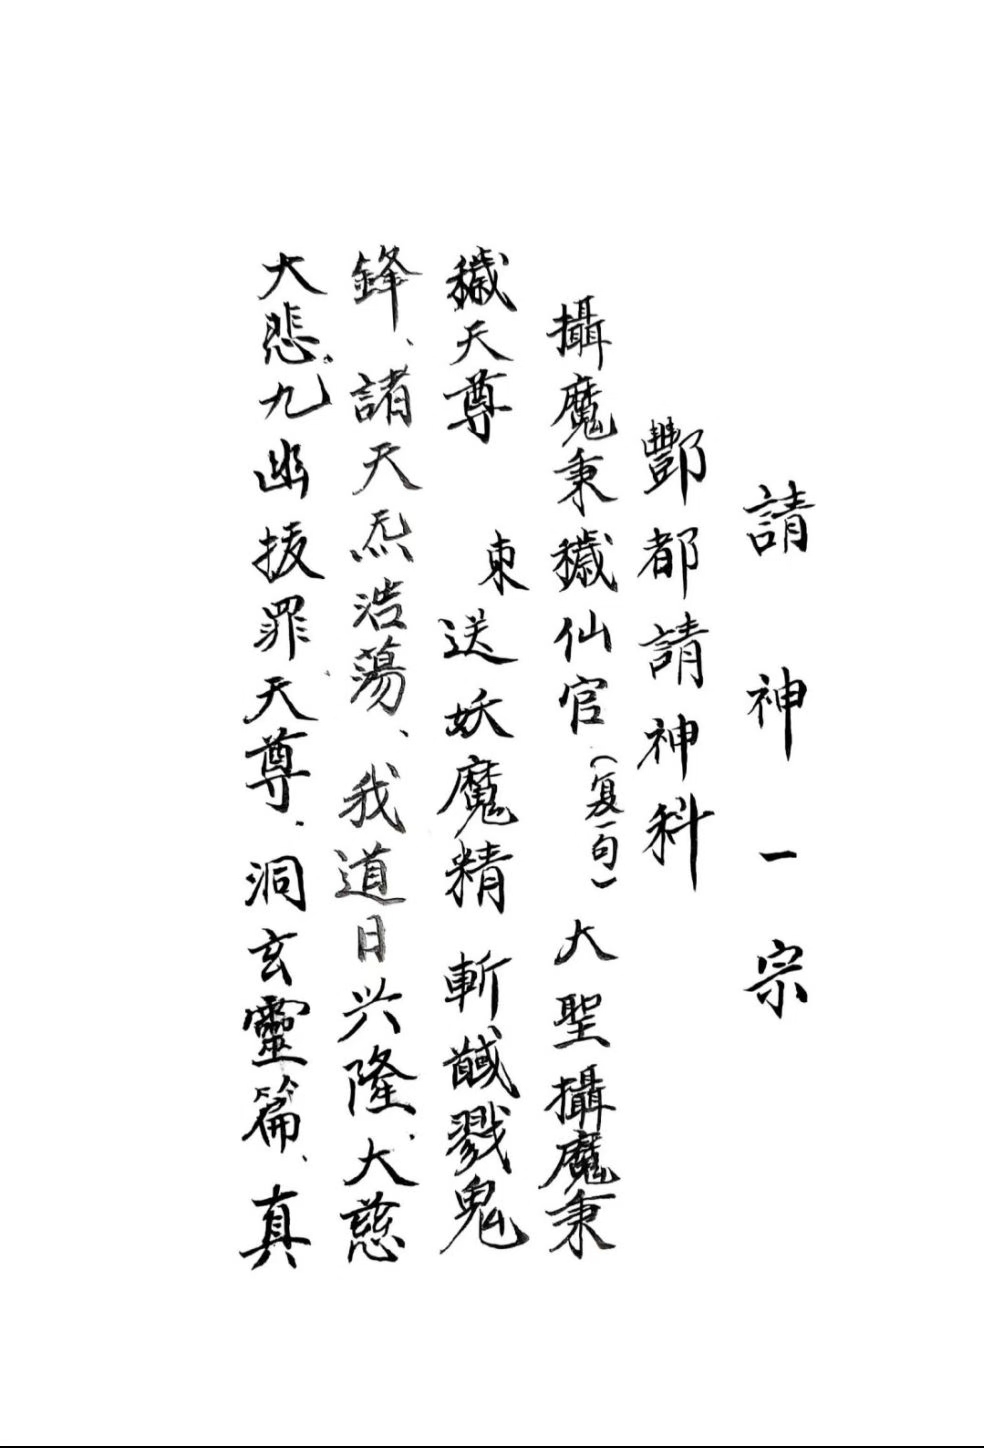 請神一宗
酆都請神科
攝魔秉穢仙官(复一句)大聖攝魔秉
穢天尊 束送妖魔精 斬馘戮鬼
鋒、諸天炁浩蕩、我道日兴隆、大慈
大悲、九幽拔罪天尊、洞玄靈篇、真